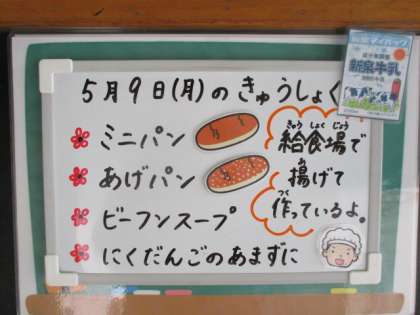 5月9日(月)のきゅうしょく
ミニパン
あげパン
ビーフンスープ
にくだんごのあまずに
きゅう しょく じょう
給食場で
あ
揚げて
つく
作っているよ。
新泉牛乳